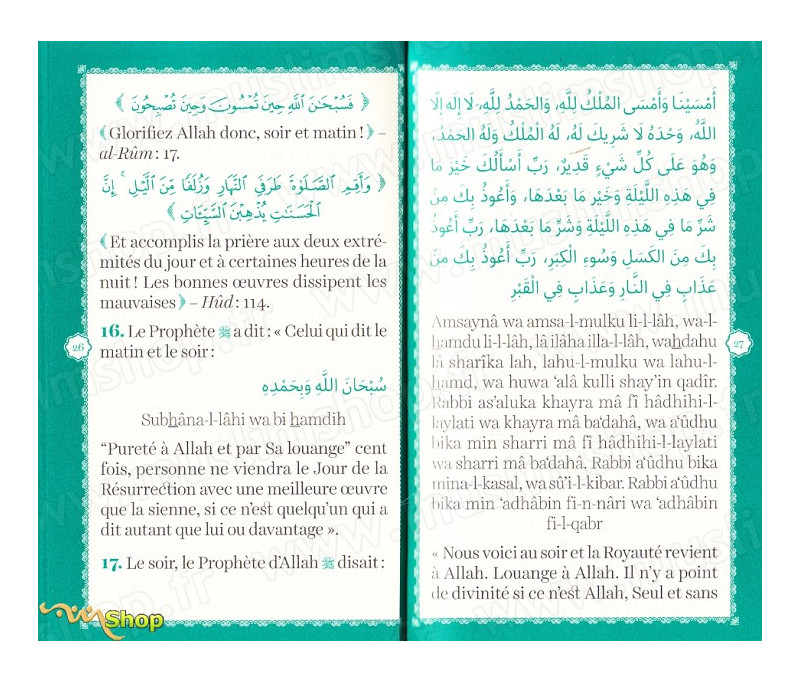 ﴿ فَسُبْحَـٰنَ ٱللَّهِ حِينَ تُمْسُونَ وَحِينَ تُصْبِحُونَ ﴾
﴾Glorifiez Allah donc, soir et matin !﴿ –
al-Rûm : 17.
﴿ وَأَقِمِ ٱلصَّلَوٰةَ طَرَفَيِ ٱلنَّهَارِ وَزُلَفًا مِّنَ ٱلَّيْلِ ۚ إِنَّ
ٱلْحَسَنَـٰتِ يُذْهِبْنَ ٱلسَّيِّـَٔاتِ ﴾
﴾Et accomplis la prière aux deux extré-
mités du jour et à certaines heures de la
nuit ! Les bonnes œuvres dissipent les
mauvaises﴿ – Hûd : 114.
16. Le Prophète ﷺ a dit : « Celui qui dit le
matin et le soir :
سُبْحَانَ اللَّهِ وَبِحَمْدِهِ
Subhâna-l-lâhi wa bi hamdih
“Pureté à Allah et par Sa louange” cent
fois, personne ne viendra le Jour de la
Résurrection avec une meilleure œuvre
que la sienne, si ce n’est quelqu’un qui a
dit autant que lui ou davantage ».
17. Le soir, le Prophète d’Allah ﷺ disait :
26
أَمْسَيْنَا وَأَمْسَى المُلْكُ لِلَّهِ، وَالحَمْدُ لِلَّهِ، لَا إِلَهَ إِلَّا
اللَّهُ، وَحْدَهُ لَا شَرِيكَ لَهُ، لَهُ الْمُلْكُ وَلَهُ الحَمْدُ،
وَهُوَ عَلَى كُلِّ شَيْءٍ قَدِيرٌ، رَبِّ أَسْأَلُكَ خَيْرَ مَا
فِي هَذِهِ اللَّيْلَةِ وَخَيْرَ مَا بَعْدَهَا، وَأَعُوذُ بِكَ مِنْ
شَرِّ مَا فِي هَذِهِ اللَّيْلَةِ وَشَرِّ مَا بَعْدَهَا، رَبِّ أَعُوذُ
بِكَ مِنَ الكَسَلِ وَسُوءِ الكِبَرِ، رَبِّ أَعُوذُ بِكَ مِنْ
عَذَابٍ فِي النَّارِ وَعَذَابٍ فِي الْقَبْرِ
Amsaynâ wa amsa-l-mulku li-l-lâh, wa-l-
hamdu li-l-lâh, lâ ilâha illa-l-lâh, wahdahu
lâ sharîka lah, lahu-l-mulku wa lahu-l-
hamd, wa huwa ‘alâ kulli shay’in qadîr.
Rabbi as’aluka khayra mâ fî hâdhihi-l-
laylati wa khayra mâ ba‘dahâ, wa a‘ûdhu
bika min sharri mâ fî hâdhihi-l-laylati
wa sharri mâ ba‘dahâ. Rabbi a‘ûdhu bika
mina-l-kasal, wa sû’i-l-kibar. Rabbi a‘ûdhu
bika min ‘adhâbin fi-n-nâri wa ‘adhâbin
fi-l-qabr
« Nous voici au soir et la Royauté revient
à Allah. Louange à Allah. Il n’y a point
de divinité si ce n’est Allah, Seul et sans
27
Shop